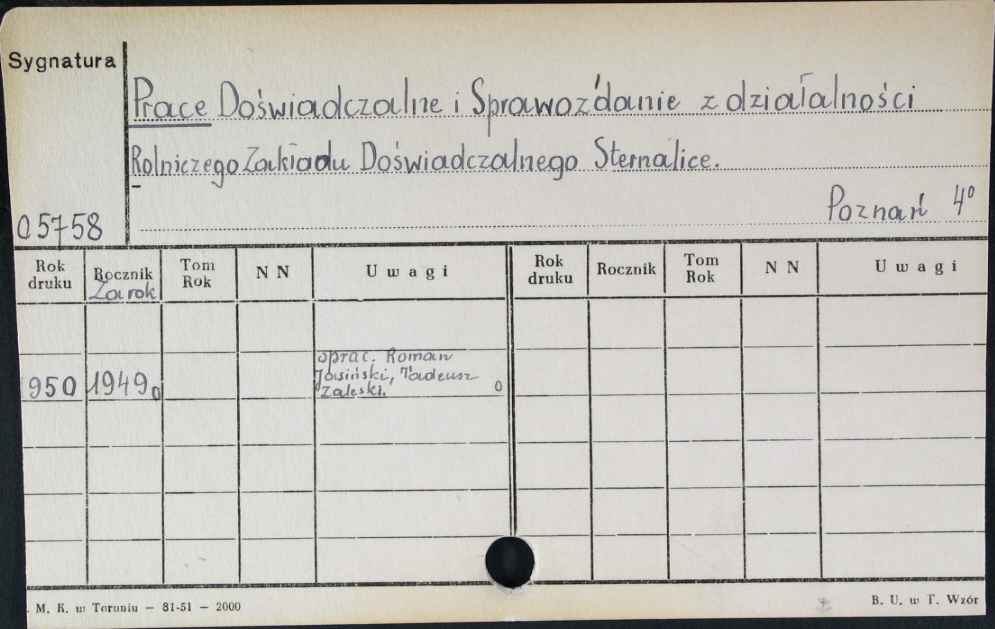 Sygnatura
Prace Doświadczalne i Sprawozdanie z działalności
Rolniczego Zakładu Doświadczalnego Sternalice.
Poznań 4°
05758
Rok druku Rocznik Za rok Tom Rok N N Uwagi Rok druku Rocznik Tom Rok N N Uwagi
oprac. Roman
950 1949 Jasiński, Tadeusz
Zaleski. 0
M. K. w Toruniu — 81-51 — 2000 B. U. w T. Wzór